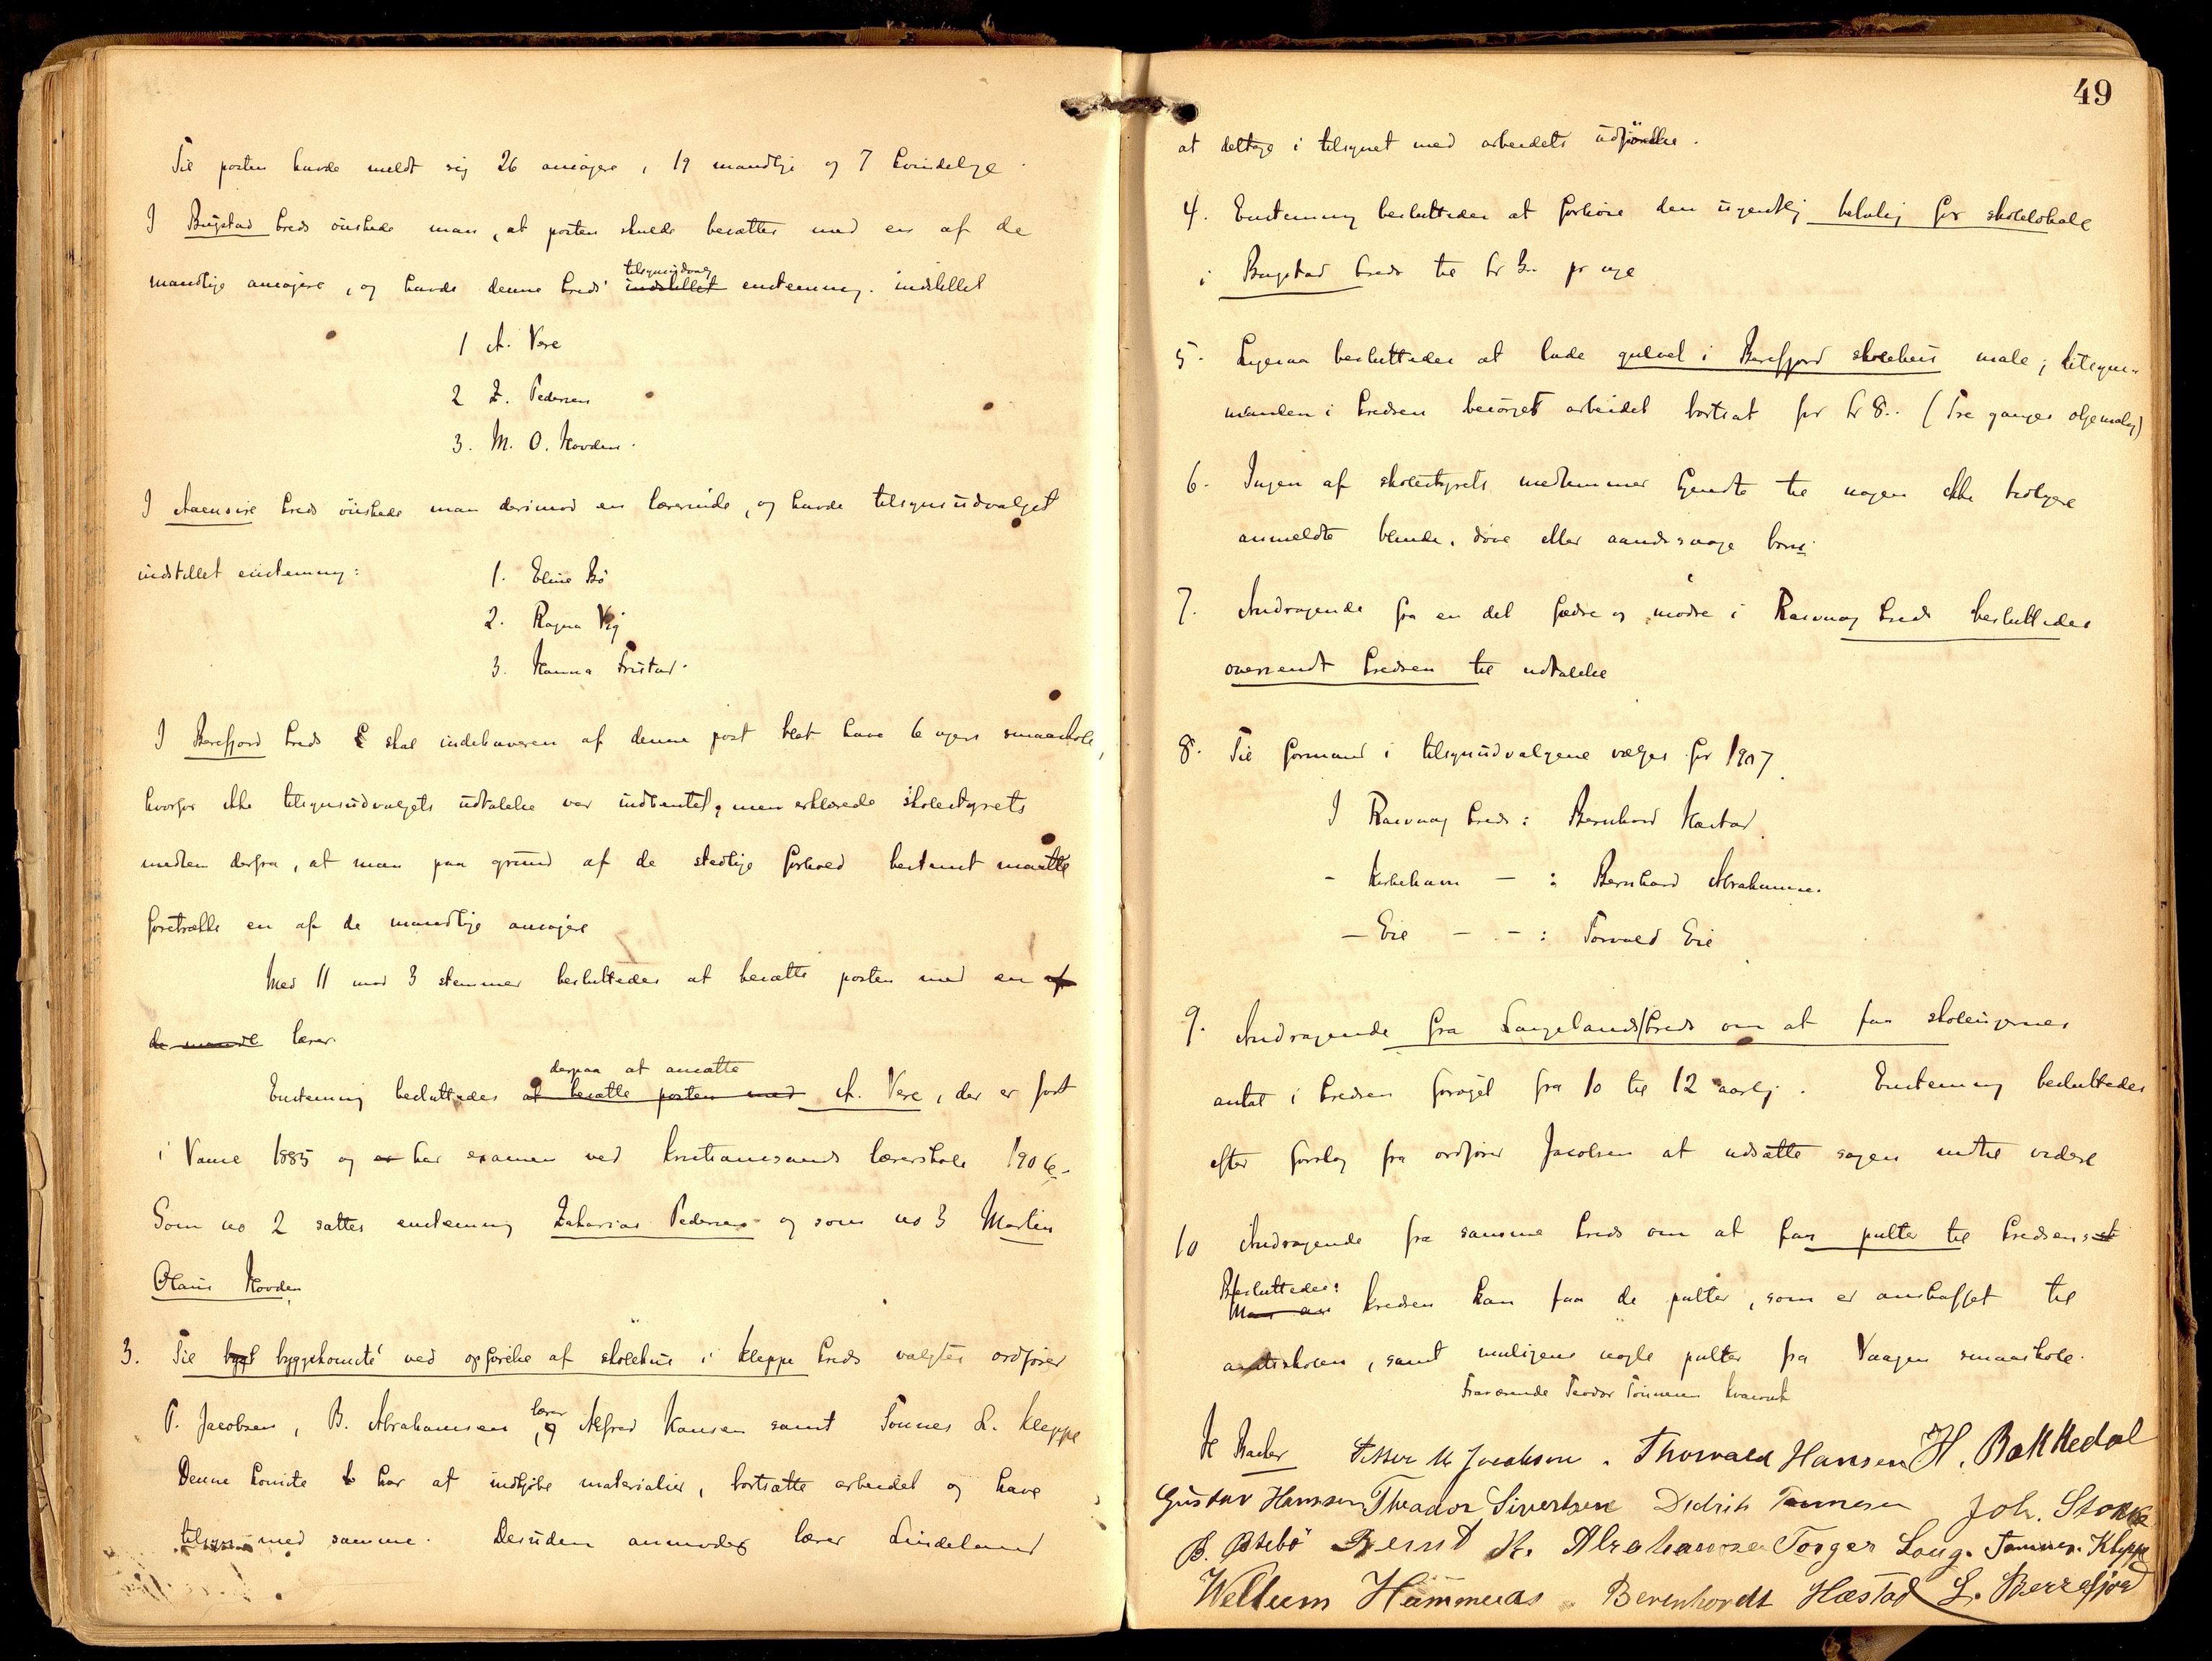 Til posten havde meldt sig 26 ansøgere, 19 mandlige og 7 kvindelige.
I Bugstad kreds ønskede man, at posten skulde besættes med en af de
tilsynsudvalg
mandlige ansøgere, og havde denne kreds' indstillet enstemmig. indstillet
1 A. Vere
2 Z. Pedersen
3. M. O. Hovden.
I Aaensire kreds ønskede man derimod en lærerinde, og havde tilsynsudvalget
indstillet enstemmig:
1. Eline Bø
2. Ragna Vig
3. Hanna
I Berefjord kreds skal indehaveren af denne post blot have 6 ugers smaaskole,
hvorfor ikke tilsynsudvalgets udtalelse var indhentet, men erklærede skolestyrets
medlem derfra, at man paa grund af de stedlige forhold bestemt maatte
foretrække en af de mandlige ansøgere
Med 11 mod 3 stemmer besluttedes at besætte posten med en af
de mandl lærer.
derpaa at ansætte
Enstemmig besluttedes at besætte posten med A. Vere, der er født
i Vanse 1885 og er har examen ved Kristianssands lærerskole 1906.
Som no 2 sattes enstemmig Zakarias Pedersen og som no 3 Martin
Olaus Hovden
3. Til bygk byggekomité ved opførelse af skolehus i Kleppe kreds valgtes ordfører
lærer
P. Jacobsen, B. Abrahamsen, og Alfred Hansen samt Tønnes L. Kleppe
Denne komite har at indkjøbe materialier, bortsætte arbeidet og have
tilsyn med samme. Desuden anmodes lærer Lindeland
49
at deltage i tilsynet med arbeidets udførelse.
4. Enstemmig besluttedes at forhøie den ugentlig betaling for skolelokale
i Bugstad kreds til kr 3.. pr uge
5. Ligesaa besluttedes at lade gulvet i Berefjord skolehus male; tilsyns-
manden i kredsen besørget arbeidet bortsat for kr 8.. (Tre ganges oljemaling)
6. Ingen af skolestyrets medlemmer kjendte til nogen ikke tidligere
anmeldte blinde, døve eller aandssvage børn.
7. Andragende fra en del fædre og mødre i Rasvaag kreds besluttedes
oversendt kredsen til udtalelse
8. Til formand i tilsynsudvalgene vælges for 1907.
I Rasvaag kreds: Bernhard Hæstad.
- Kirkehavn - : Bernhard Abrahamsen.
- Eie - - : Torvald Eie
9. Andragende fra Langelands kreds om at faa skoleugernes
antal i kredsen forøget fra 10 til 12 aarlig. Enstemmig besluttedes
efter forslag fra ordfører Jacobsen at udsætte sagen indtil videre
10 Andragende fra samme kreds om at faa pulter til kredsens st
Besluttedes:
Man an kredsen kan faa de pulter, som er anskaffet til
amtsskolen, samt muligens nogle pulter fra Vaagen smaaskole.
Fraværende Teodor Tønnesen
Peder M Jacobsen. Thorvald Hansen H. Bakkedal
Gustav Hanssen Theador Sivertsen Didrik Tønnesen Joh. Stokke
B. Østebø Bernt K. Abrahamsen Torger Laug. Tønnes. Kleppe
Wellum Hammeraas. Berenhardt Hæstad L. Berrefjord